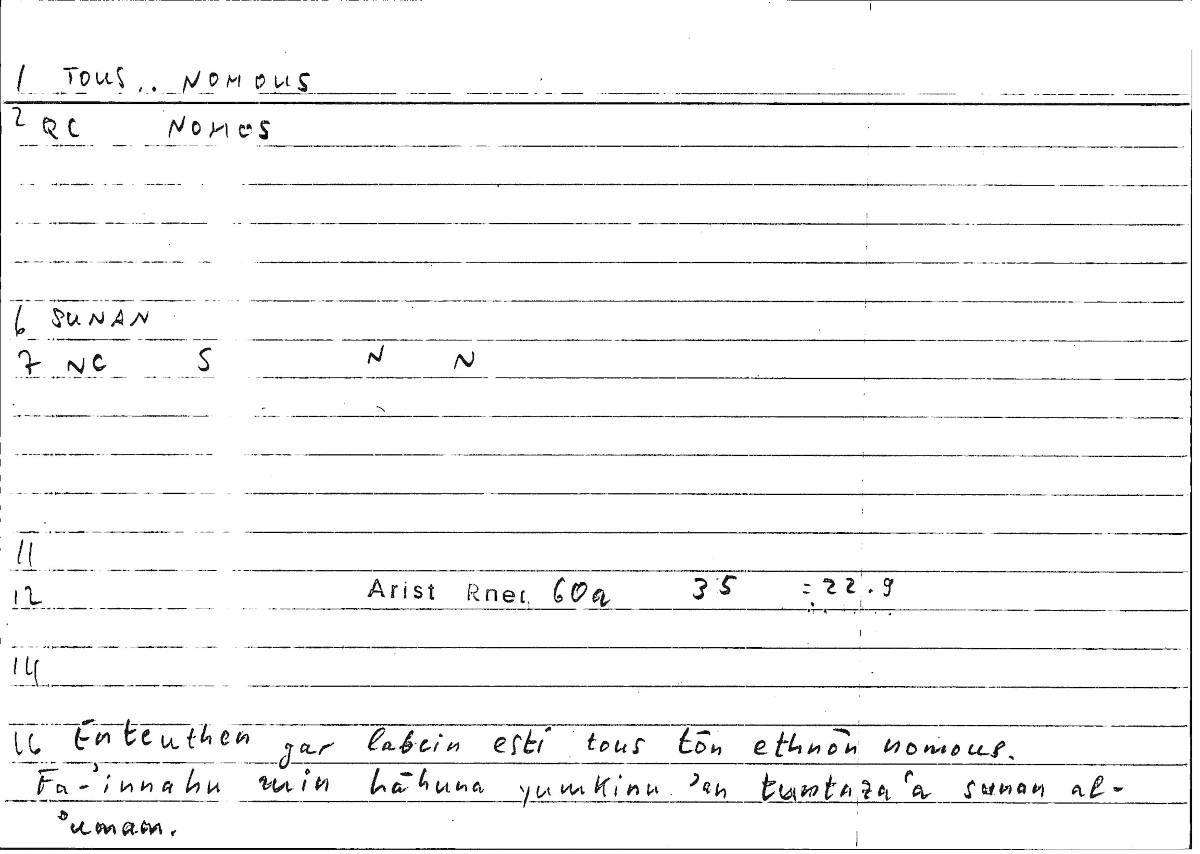 1 TOUS .. NOMOUS
2 QC NOMOS
6 SUNAN
7 NC S N N
11
12 Arist Rhet. 60a 35 = 22.9
14
16 Enteuthen gar labein esti tous tōn ethnōn nomous.
Fa-ʾinnahu min hāhuna yumkinu ʾan tuntazaʿa sunan al-
ʾumam.